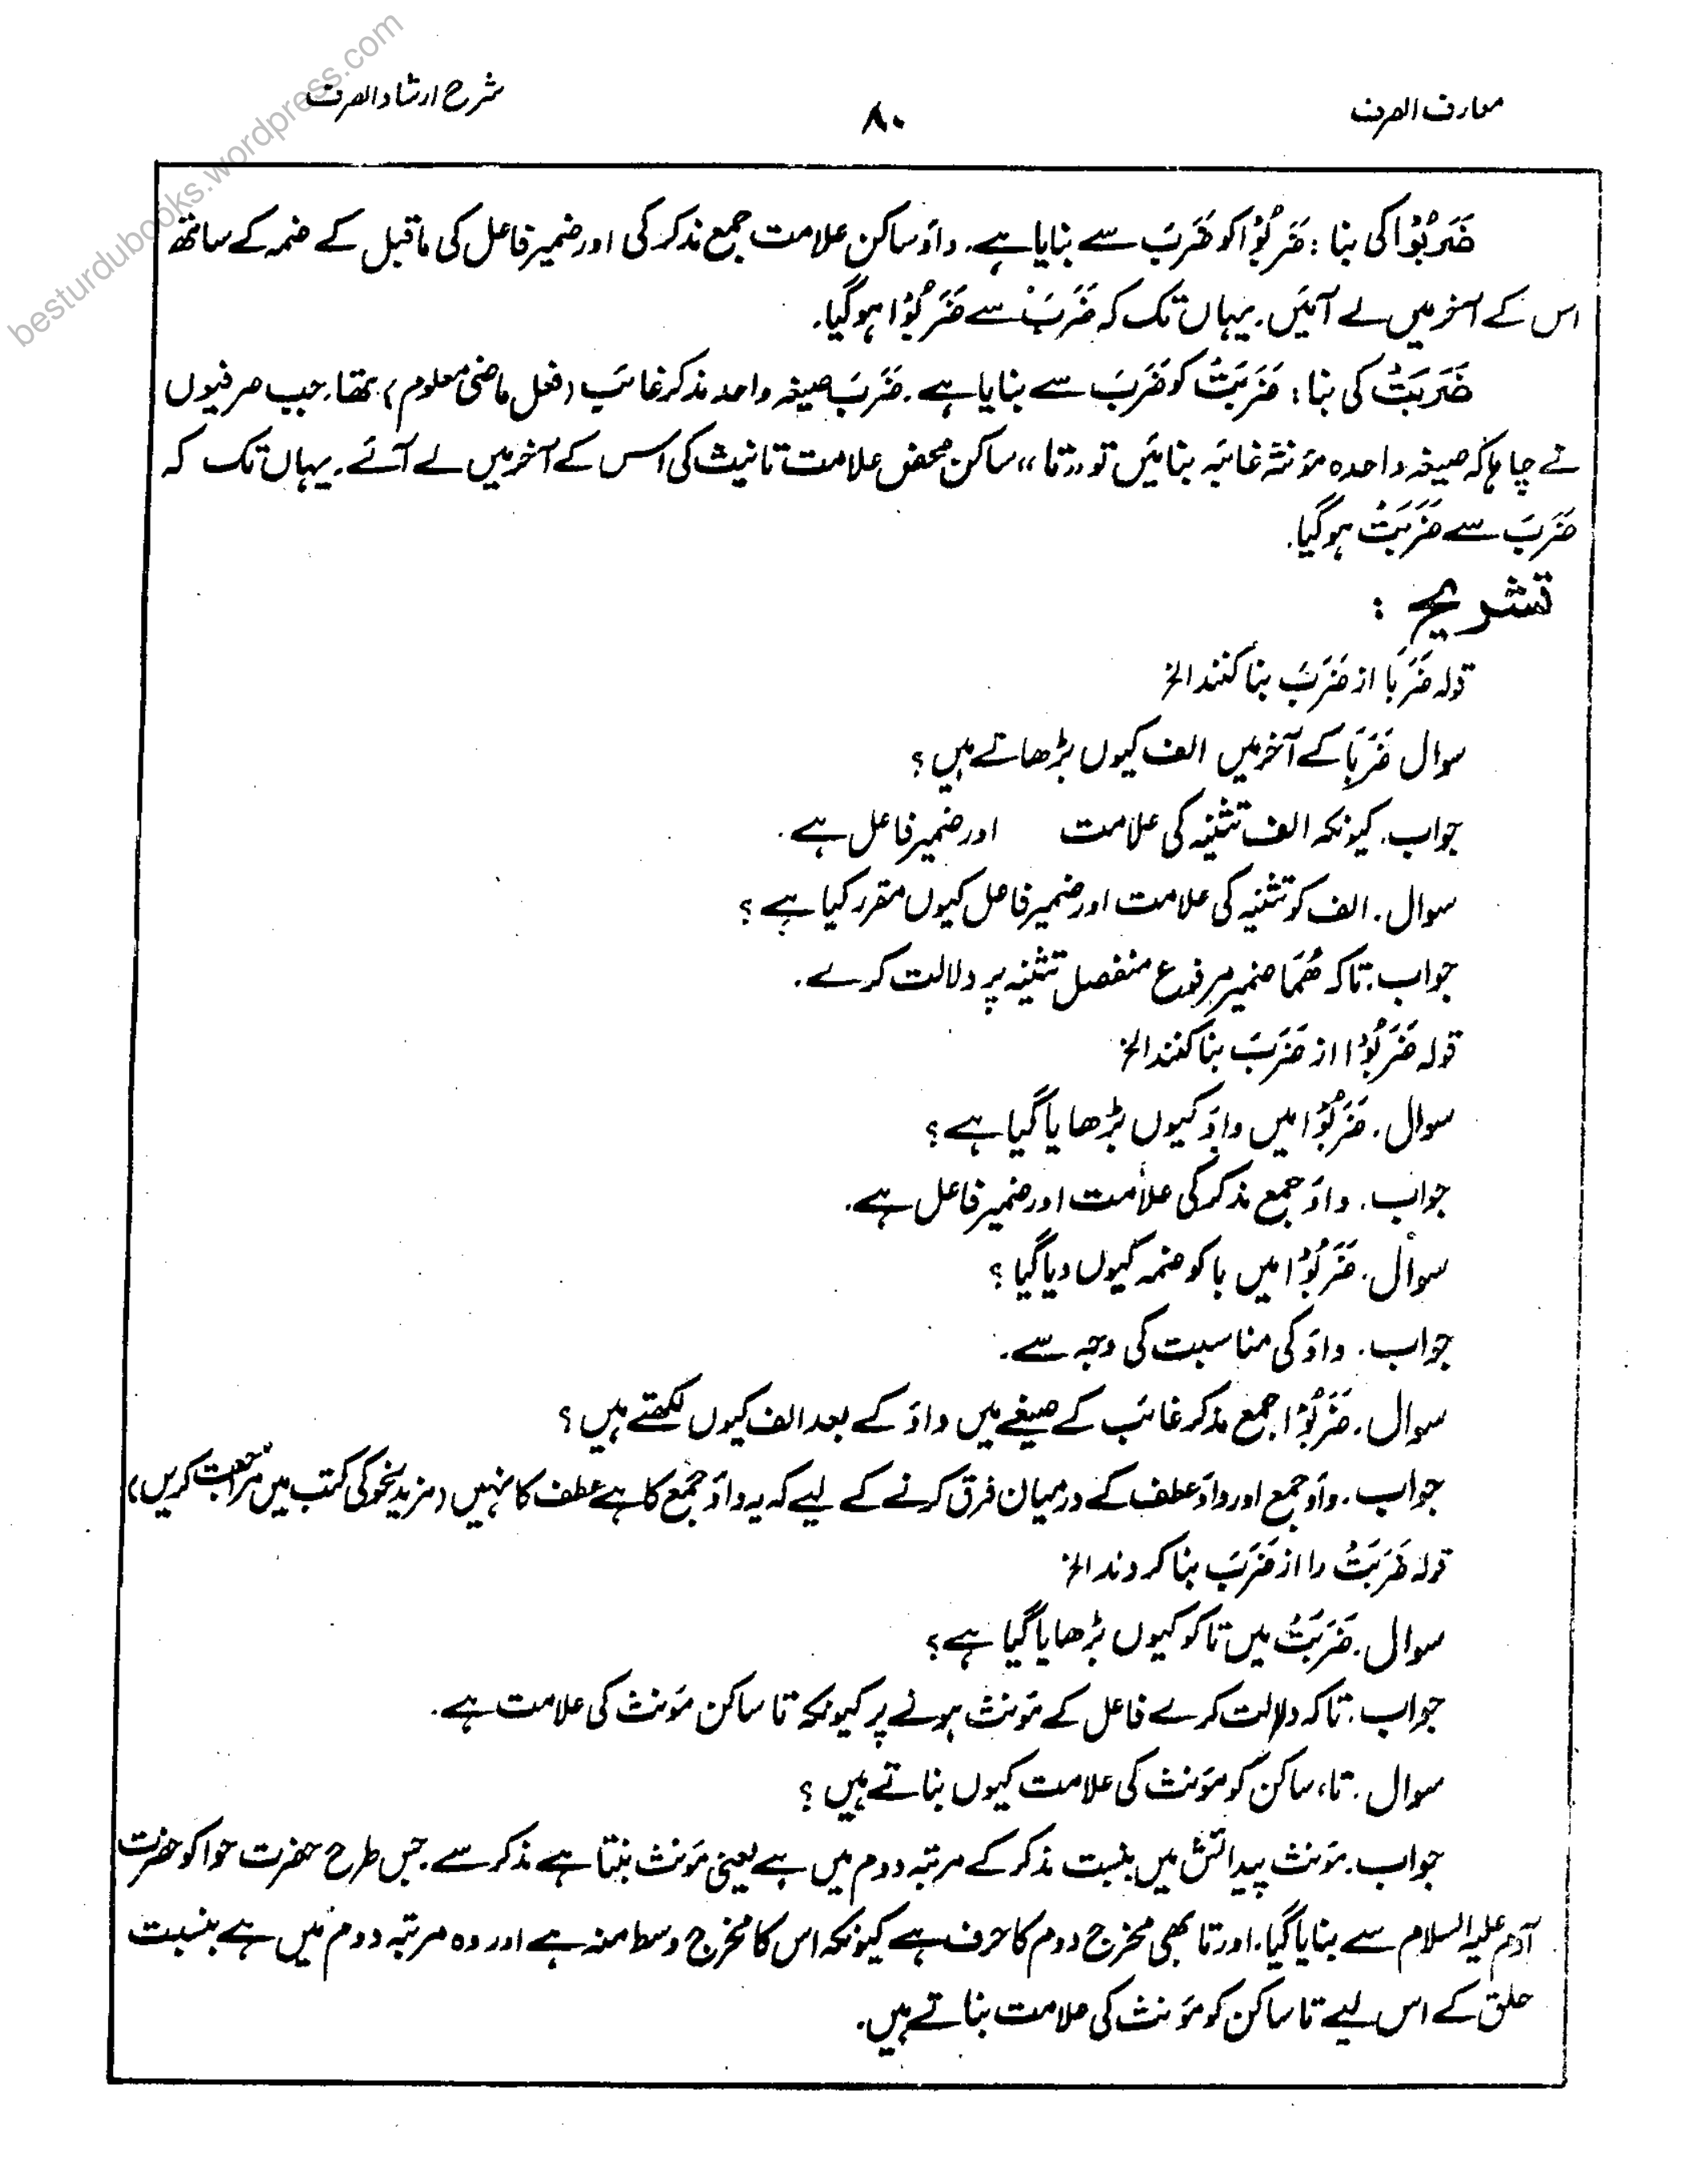 معارف الصرف
۸۰
شرح ارشاد الصرف
besturdubooks.wordpress.com
ضَرَبُوْا کی بنا : ضَرَبُوْا کو ضَرَبَ سے بنایا ہے۔ واؤ ساکن علامت جمع مذکر کی اور ضمیر فاعل کی ماقبل کے ضمہ کے ساتھ
اس کے آخر میں لے آئیں۔ یہاں تک کہ ضَرَبَ سے ضَرَبُوْا ہو گیا۔
ضَرَبَتْ کی بنا : ضَرَبَتْ کو ضَرَبَ سے بنایا ہے۔ ضَرَبَ صیغہ واحد مذکر غائب (فعل ماضی معلوم) تھا۔ جب صرفیوں
نے چاہا کہ صیغہ واحدہ مؤنثہ غائبہ بنائیں تو ,,تا،، ساکن محض علامت تانیث کی اس کے آخر میں لے آئے۔ یہاں تک کہ
ضَرَبَ سے ضَرَبَتْ ہو گیا۔
تشریح :
قولہ ضَرَبَا از ضَرَبَ بنا کنند الخ
سوال ضَرَبَا کے آخر میں الف کیوں بڑھاتے ہیں ؟
جواب۔ کیونکہ الف تثنیہ کی علامت اور ضمیر فاعل ہے۔
سوال۔ الف کو تثنیہ کی علامت اور ضمیر فاعل کیوں مقرر کیا ہے ؟
جواب۔ تاکہ ھُمَا ضمیر مرفوع منفصل تثنیہ پر دلالت کرے۔
قولہ ضَرَبُوْا از ضَرَبَ بنا کنند الخ
سوال۔ ضَرَبُوْا میں واؤ کیوں بڑھایا گیا ہے ؟
جواب۔ واؤ جمع مذکر کی علامت اور ضمیر فاعل ہے۔
سوال۔ ضَرَبُوْا میں با کو ضمہ کیوں دیا گیا ؟
جواب۔ واؤ کی مناسبت کی وجہ سے۔
سوال۔ ضَرَبُوْا جمع مذکر غائب کے صیغے میں واؤ کے بعد الف کیوں لکھتے ہیں ؟
جواب۔ واؤ جمع اور واؤ عطف کے درمیان فرق کرنے کے لیے کہ یہ واؤ جمع کا ہے عطف کا نہیں (مزید نحو کی کتب میں مراجعت کریں)
قولہ ضَرَبَتْ را از ضَرَبَ بنا کردند الخ
سوال۔ ضَرَبَتْ میں تا کو کیوں بڑھایا گیا ہے ؟
جواب۔ تاکہ دلالت کرے فاعل کے مؤنث ہونے پر کیونکہ تا ساکن مؤنث کی علامت ہے۔
سوال۔ تاء ساکن کو مؤنث کی علامت کیوں بناتے ہیں ؟
جواب۔ مؤنث پیدائش میں بنسبت مذکر کے مرتبہ دوم میں ہے یعنی مؤنث بنتا ہے مذکر سے۔ جس طرح حضرت حوا کو حضرت
آدم علیہ السلام سے بنایا گیا۔ اور تا بھی مخرج دوم کا حرف ہے کیونکہ اس کا مخرج وسط منہ ہے اور وہ مرتبہ دوم میں ہے بنسبت
حلق کے اس لیے تا ساکن کو مؤنث کی علامت بناتے ہیں۔